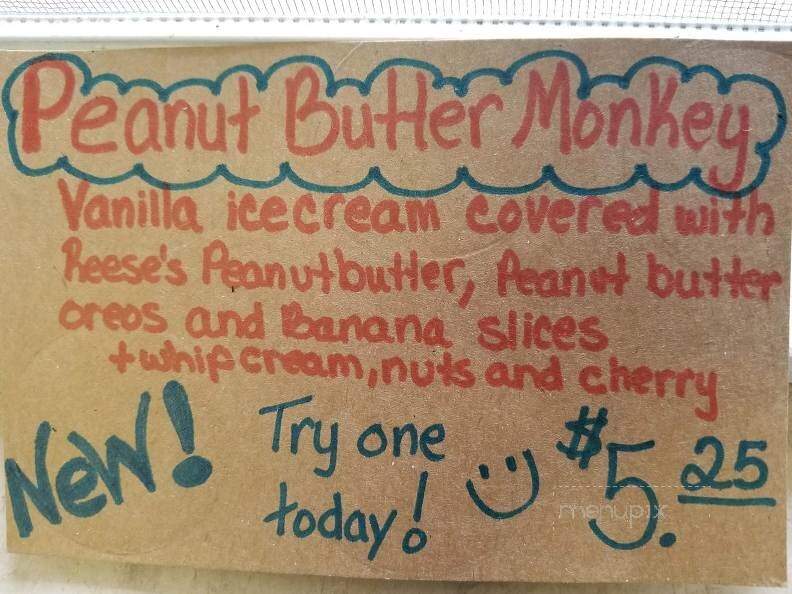 Peanut Butter Monkey
Vanilla icecream covered with
Reese's Peanutbutter, Peanut butter
oreos and Banana slices
+ whip cream, nuts and cherry
New! Try one today! $5.25
menupix